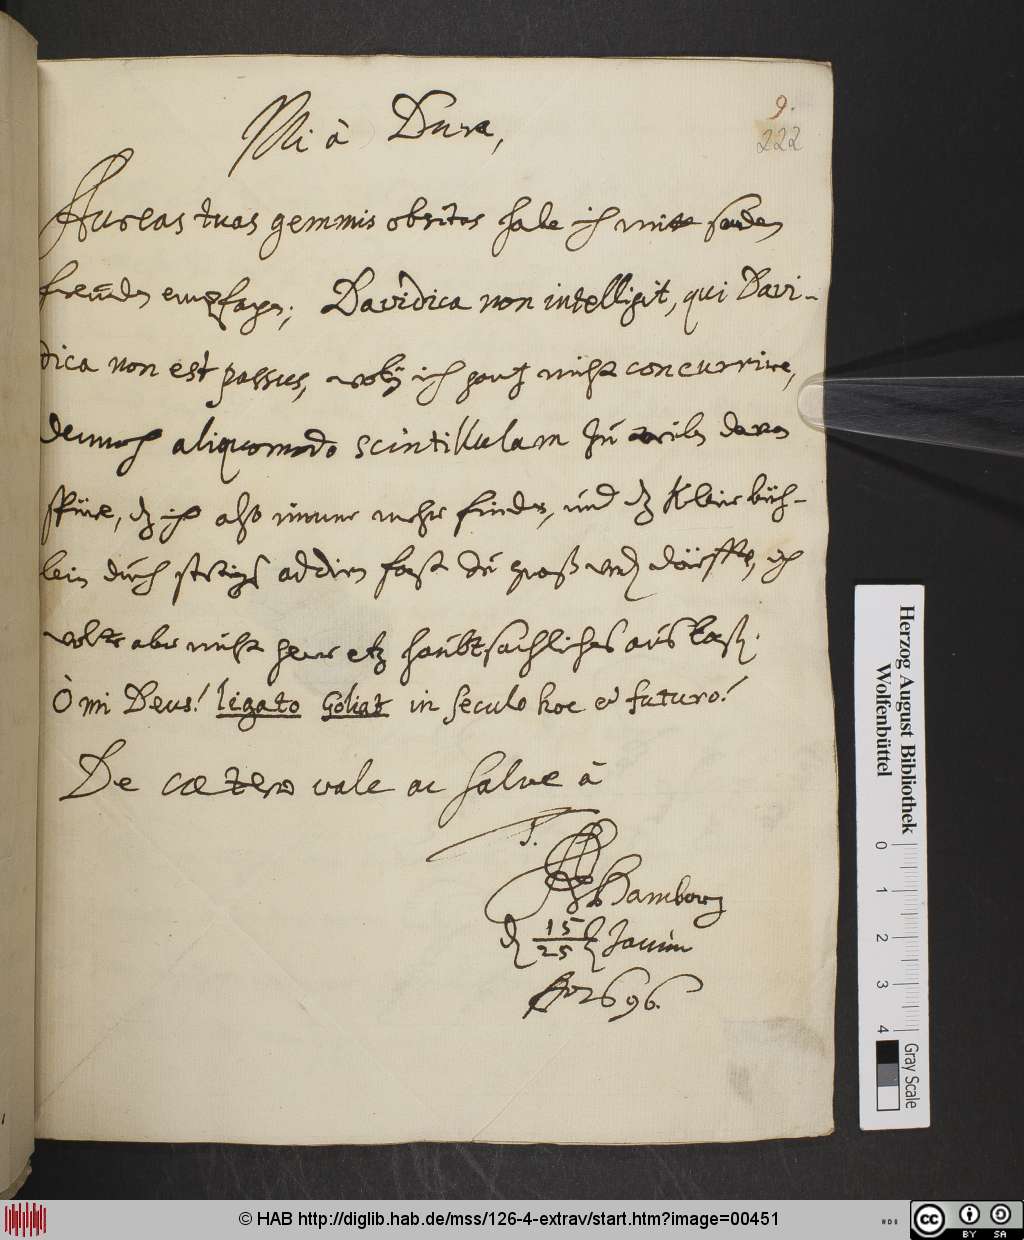 9.
222
Mi à Dura,
Aureas tuas gemmis obsitas habe ich mitt
empfangen; Davidica non intelligit, qui Davi-
dica non est passus, ich nicht concurrire,
dennoch aliquomodo scintillulam zu davon
spüre, dz ich also immer mehr finde, und dz Kleine büch-
lein durch addiren fast groß werden dörffte, ich
wolte aber nicht gerne etz haubtsachliches auslaßen.
O mi Deus! ligato Goliat in seculo hoc et futuro!
De cætero vale ac salve à
T.
Hamborg
d 15/25 Januar
Ao 1696.
Herzog August Bibliothek
Wolfenbüttel
0 1 2 3 4
Gray Scale
© HAB http://diglib.hab.de/mss/126-4-extrav/start.htm?image=00451
cc BY SA